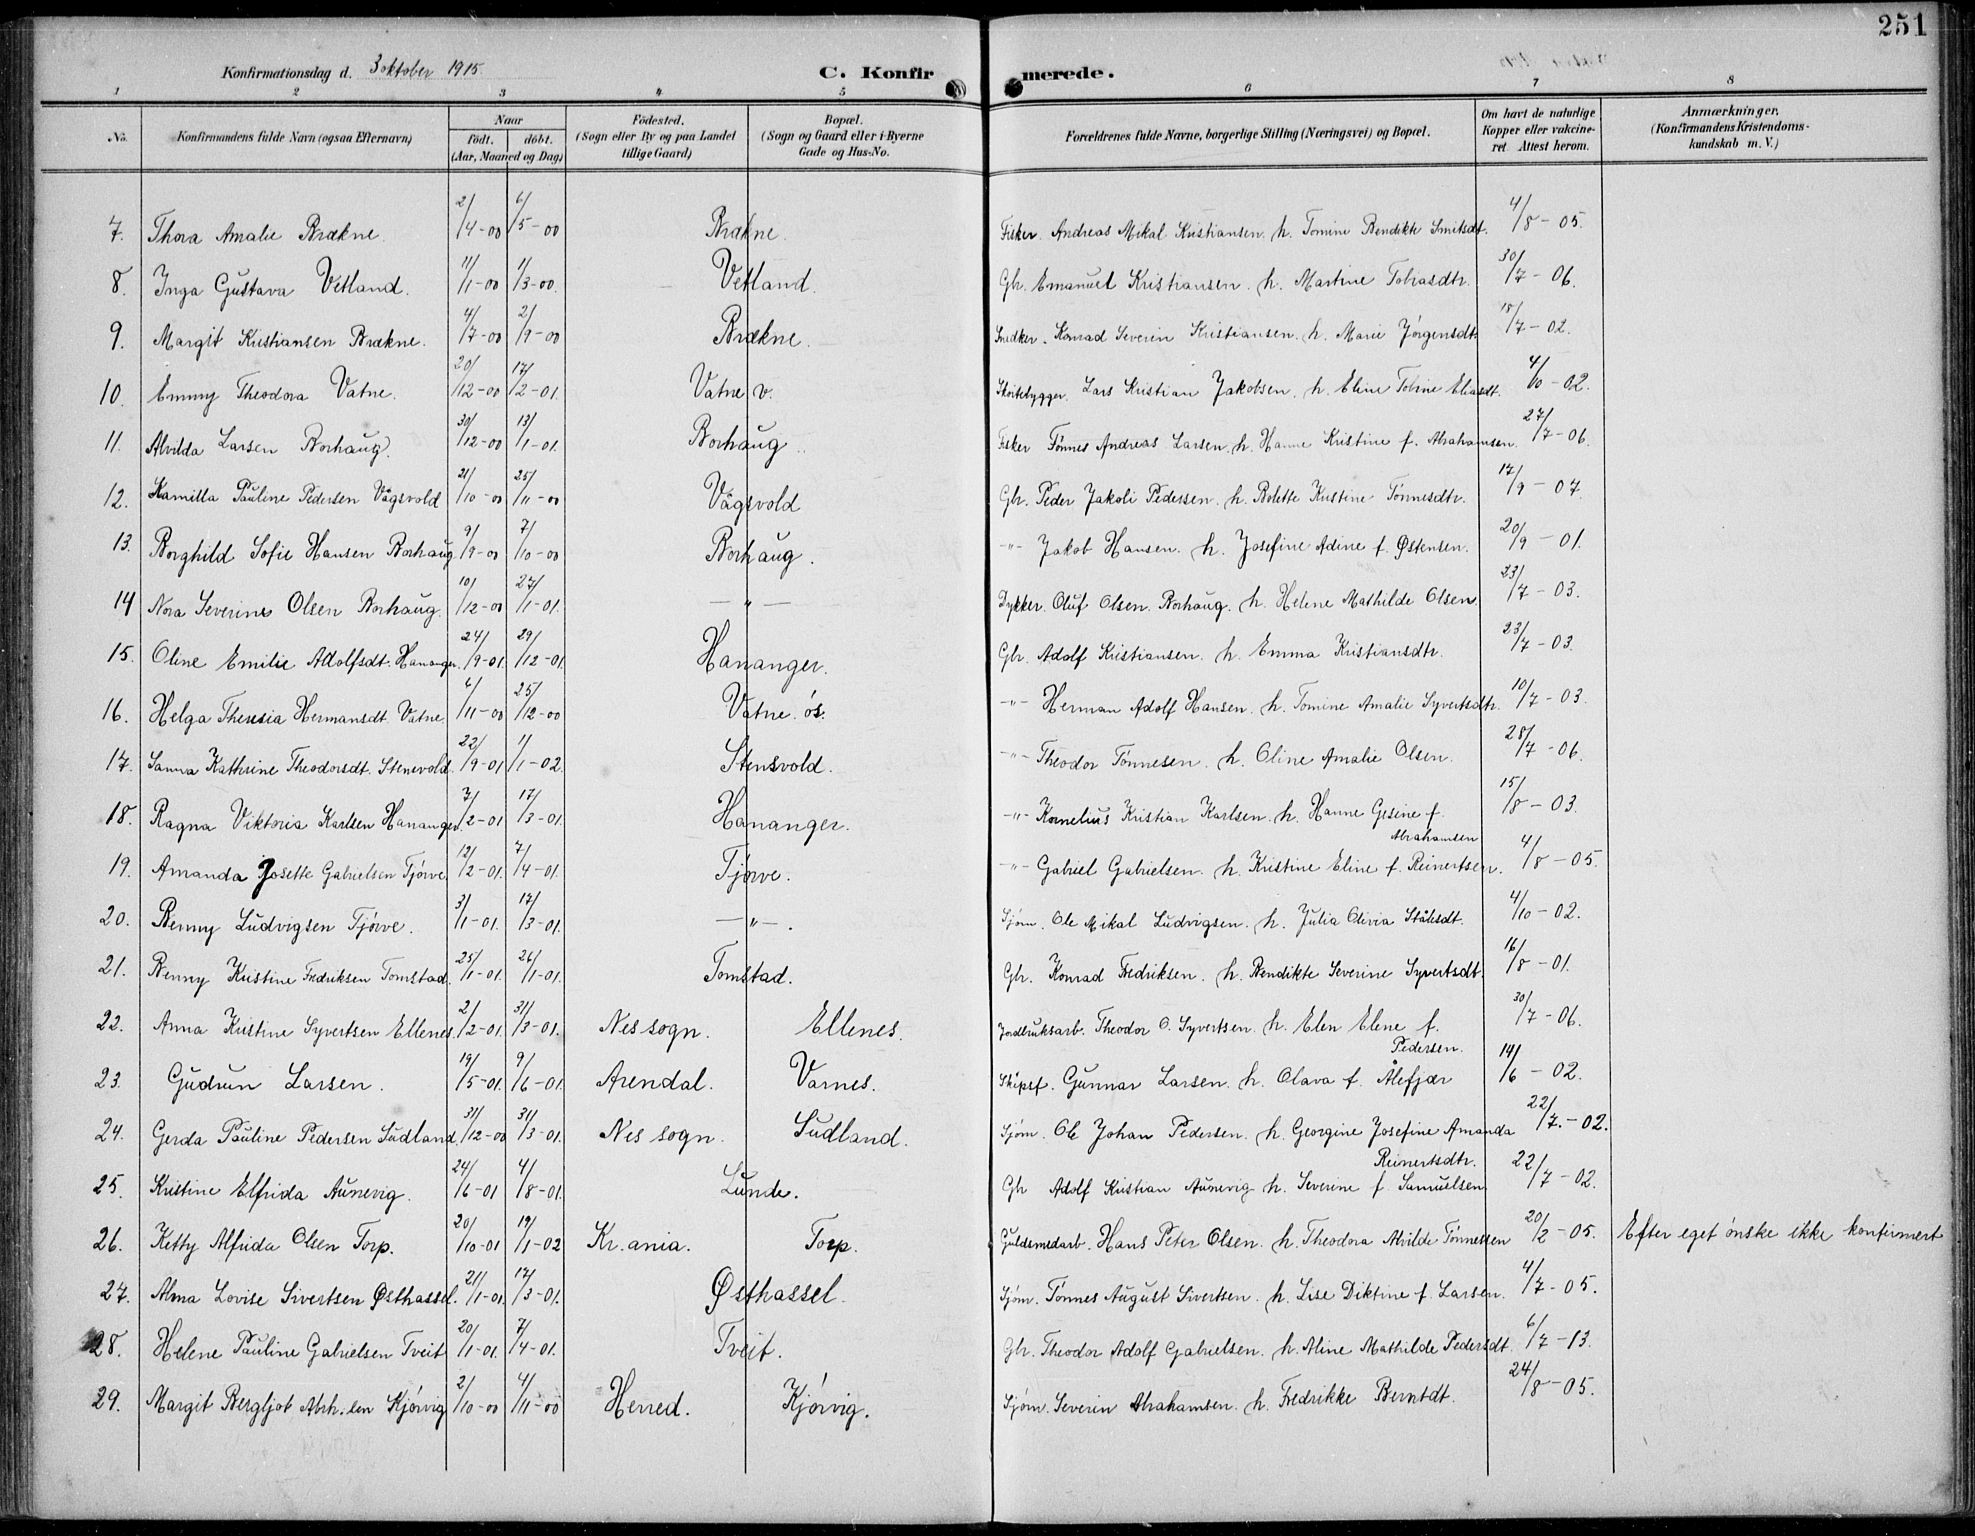 251
Konfirmationsdag d. 3 oktober 1915. C. Konfirmerede.
1 2 3 4 5 6 7 8
No. Konfirmandens fulde Navn (ogsaa Efternavn) Naar födt. döbt. (Aar, Maaned og Dag) Födested. (Sogn eller By og paa Landet tillige Gaard) Bopæl. (Sogn og Gaard eller i Byerne Gade og Hus-No. Forældrenes fulde Navne, borgerlige Stilling (Næringsvei) og Bopæl. Om havt de naturlige Kopper eller vakcineret. Attest herom. Anmærkninger. (Konfirmandens Kristendomskundskab m. V.)
7. Thora Amalie Brækne. 2/4-00 6/5-00 Brækne. Fisker. Andreas Mikal Kristiansen. h. Tomine Bendikte Smitsdt. 4/8-05.
8. Inga Gustava Vetland. 11/1-00 1/3-00. Vetland. Gbr. Emanuel Kristiansen. h. Martine Tobiasdtr. 30/7-06.
9. Margit Kristiansen Brækne. 4/7-00 2/9-00 Brækne. Snedker. Konrad Severin Kristiansen. h. Marie Jørgensdtr. 15/7-02.
10. Emmy Theodora Vatne. 20/12-00 17/2-01. Vatne v. Skøitebygger. Lars Kristian Jakobsen. h. Eline Tobine Eliasdt. 4/10-02.
11. Alvilda Larsen Borhaug. 30/12-00 13/1-01. Borhaug. Fisker Tønnes Andreas Larsen. h. Hanne Kristine f. Abrahamsen. 27/7-06.
12. Kamilla Pauline Pedersen Vågsvold 21/10-00 25/11-00 Vågsvold Gbr. Peder Jakob Pedersen. h. Bolette Kristine Tønnesdtr. 17/9-07.
13. Borghild Sofie Hansen Borhaug. 9/9-00 7/10-00 Borhaug. -"- Jakob Hansen. h. Josefine Adine f. Østensen. 20/9-01.
14 Nora Severine Olsen Borhaug. 10/12-00 27/1-01. — " — Dykker. Oluf Olsen. Borhaug. h. Helene Mathilde Olsen. 23/7-03.
15. Oline Emilie Adolfsdt. Hananger. 24/9-01. 29/12-01. Hananger. Gbr. Adolf Kristiansen. h. Emma Kristiansdtr. 23/7-03.
16. Helga Theresia Hermansdt. Vatne. 6/11-00 25/12-00 Vatne. øs. -"- Herman Adolf Hansen. h. Tomine Amalie Syvertsdtr. 10/7-03.
17. Sanna Kathrine Theodorsdt. Stensvold. 22/9-01 1/1-02. Stensvold. -"- Theodor Tønnesen. h. Oline Amalie Olsen. 28/7-06.
18. Ragna Viktoria Karlsen Hananger. 7/2-01 17/3-01. Hananger. -"- Kornelius Kristian Karlsen. h. Hanne Gesine f. Abrahamsen 15/8-03.
19. Amanda Josette Gabrielsen Tjørve. 12/2-01. 7/4-01. Tjørve. -"- Gabriel Gabrielsen. h. Kristine Eline f. Reinertsen. 4/8-05.
20. Benny Ludvigsen Tjørve. 3/1-01. 17/3-01. — " —. Sjøm. Ole Mikal Ludvigsen. h. Julia Olivia Ståhsdt. 4/10-02.
21. Benny Kristine Fredriksen Tomstad. 25/1-01. 26/1-01. Tomstad. Gbr. Konrad Fredriksen. h. Bendikte Severine Syvertsdt. 16/8-01.
22. Anna Kristine Syvertsen Ellenes. 2/2-01. 31/3-01. Nes sogn. Ellenes. Jordbruksarb. Theodor O. Syvertsen. h. Elen Elene f. Pedersen. 30/7-06.
23. Gudrun Larsen. 19/5-01. 9/6-01. Arendal. Varnes. Skipsf. Gunnar Larsen. h. Olava f. Ålefjær 14/6-02.
24. Gerda Pauline Pedersen Sudland. 31/12-00 31/3-01. Nes sogn. Sudland. Sjøm. Ole Johan Pedersen. h. Georgine Josefine Amanda Reinertsdtr. 22/7.-02.
25. Kristine Elfrida Aunevig. 24/6-01 4/8-01. Lunde. Gbr Adolf Kristian Aunevig h. Severine f. Samuelsen 22/7-02.
26. Ketty Alfrida Olsen Torp. 20/10-01 19/1-02 Kr.ania. Torp. Guldsmedarb. Hans Peter Olsen. h. Theodora Alvilde Tønnessen 20/2-05. Efter eget ønske ikke konfirmert
27. Alma Lovise Sivertsen Østhassel. 21/1-01. 17/3-01. Østhassel. Sjøm. Tønnes August Sivertsen. h. Lise Diktine f. Larsen. 4/7-05.
28. Helene Pauline Gabrielsen Tveit 20/1-01. 7/4-01. Tveit. Gbr. Theodor Adolf Gabrielsen. h. Aline Mathilde Pedersdt. 6/7-13.
29. Margit Bergljot Abrh.sen Kjørvig 2/10-00 4/11-00 Herred. Kjørvig. Sjøm. Severin Abrahamsen. h. Fredrikke Berntdt. 24/8-05.